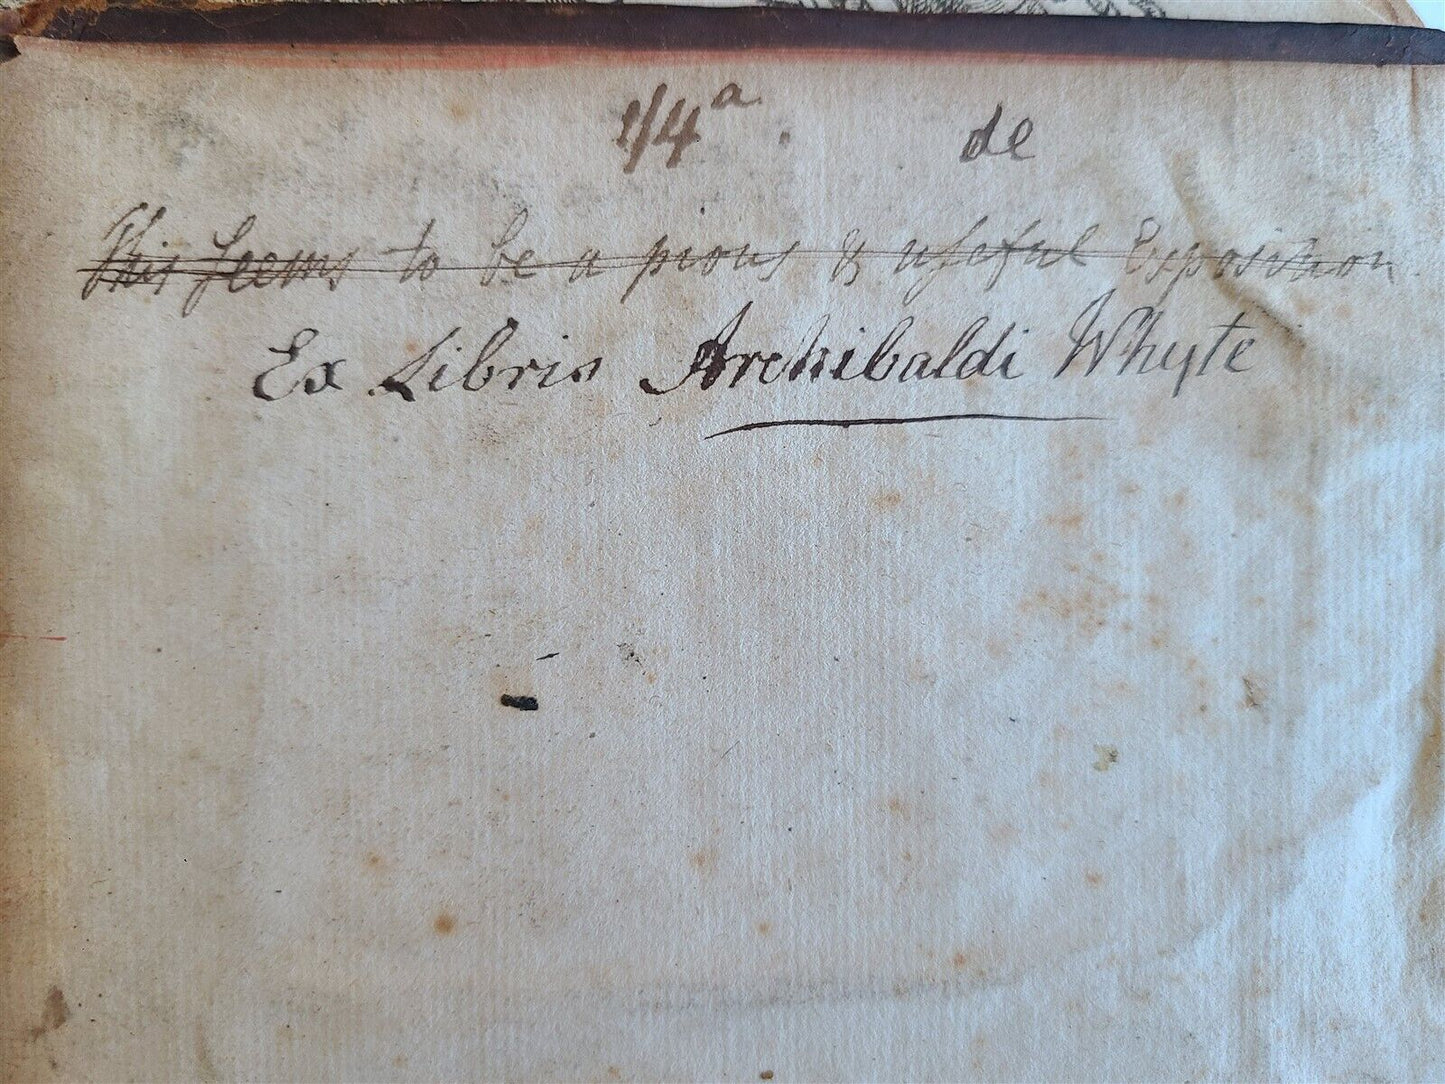 1/4ᵃ. de
This seems to be a pious & useful Exposition
Ex Libris Archibaldi Whyte